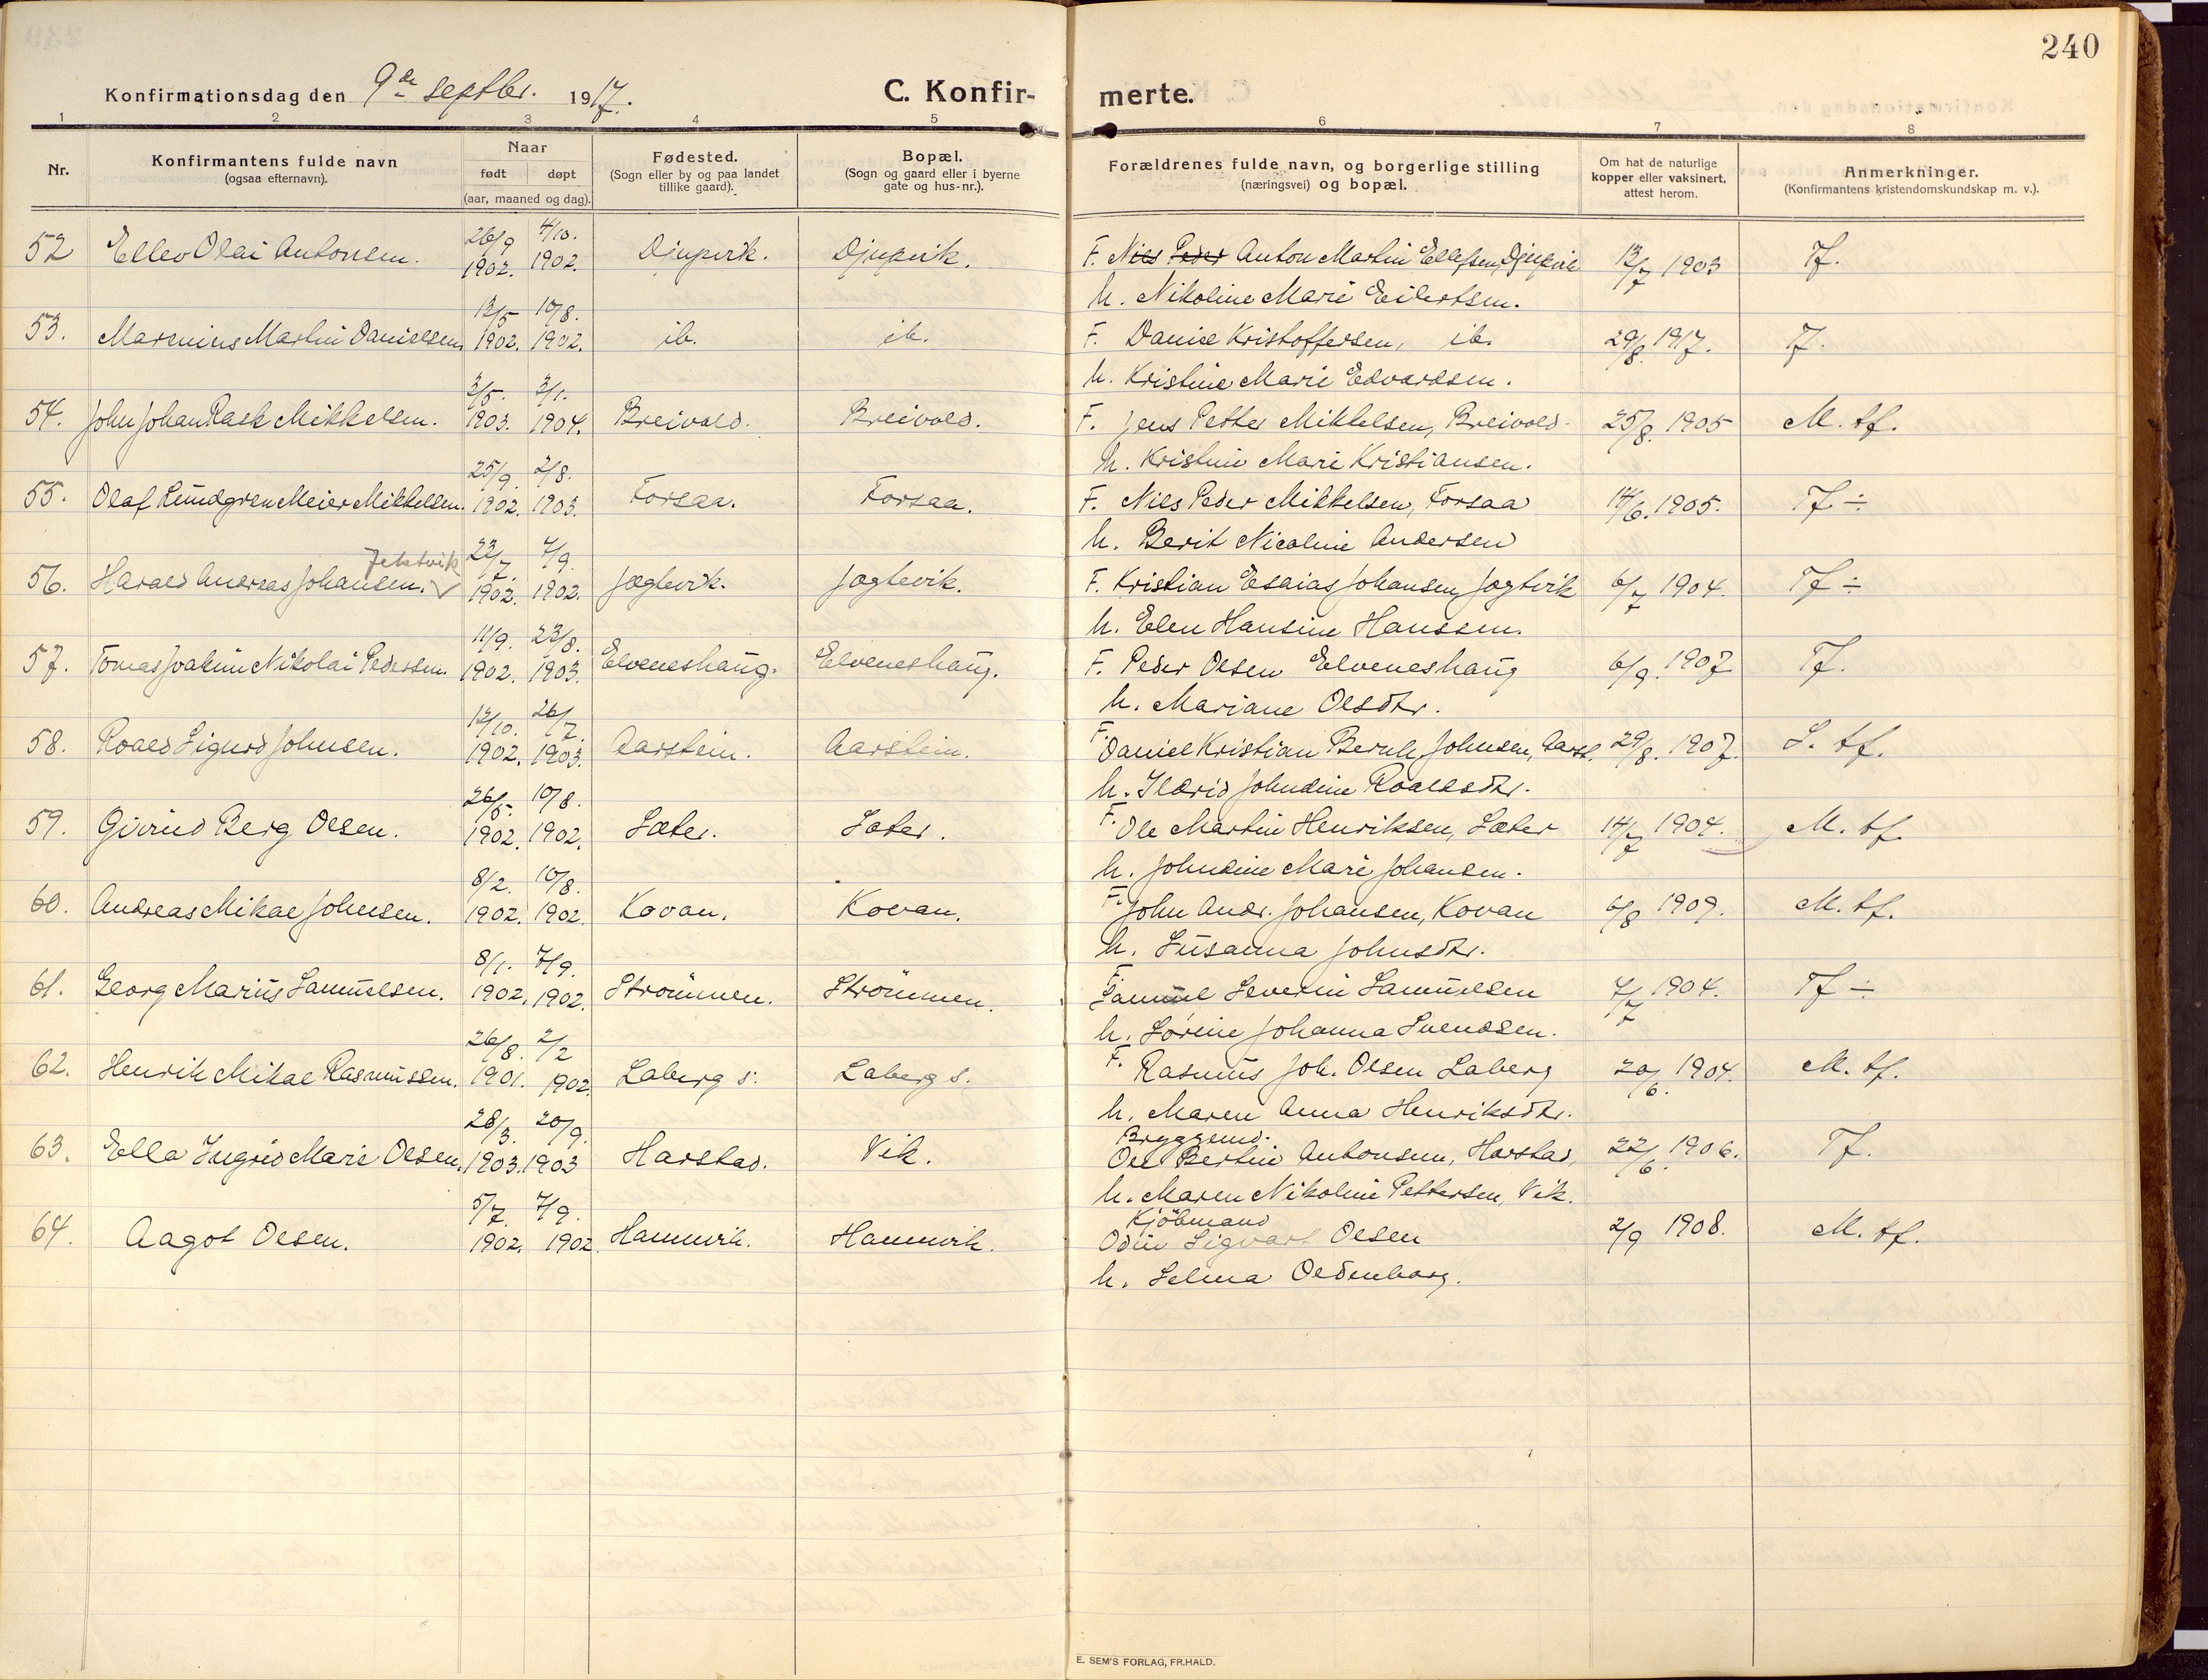 240
Konfirmationsdag den 9de septbr. 1917. C. Konfir- merte.
1 2 3 4 5 6 7 8
Nr.
Konfirmantens fulde navn
(ogsaa efternavn).
Naar
født døpt
(aar, maaned og dag).
Fødested.
(Sogn eller by og paa landet
tillike gaard).
Bopæl.
(Sogn og gaard eller i byerne
gate og hus-nr.).
Forældrenes fulde navn, og borgerlige stilling
(næringsvei) og bopæl.
Om hat de naturlige
kopper eller vaksinert,
attest herom.
Anmerkninger.
(Konfirmantens kristendomskundskap m. v.).
52 Ellev Olai Antonsen. 26/9 1902. 4/10. 1902. Djupvik. Djupvik. F. Nils Peder Anton Martin Ellefsen, Djupvik 13/7 1903 Tf.
M. Nikoline Marie Eilertsen.
53. Marenius Martin Danielsen. 12/5 1902. 10/8. 1902. ib. ib. F. Daniel Kristoffersen, ib. 29/8. 1917. Tf.
M. Kristine Marie Edvardsen.
54. John Johan Rask Mikkelsen. 3/5. 1903. 3/1. 1904. Breivold. Breivold. F. Jens Petter Mikkelsen, Breivold 25/8. 1905 M. tf.
M. Kristine Marie Kristiansen.
55. Olaf Lundgren Meier Mikkelsen. 25/9. 1902. 2/8. 1903. Forsaa. Forsaa. F. Nils Peder Mikkelsen, Forsaa 14/6. 1905. Tf ÷
M. Berit Nicoline Andersen
Jektvik
56. Harald Andreas Johansen. 22/7. 1902. 7/9. 1902. Jægtvik. Jægtevik. F. Kristian Esaias Johansen, Jægtvik 6/7 1904. Tf ÷
M. Elen Hansine Hanssen.
57. Tomas Joakim Nikolai Pedersen. 11/9. 1902. 23/8. 1903. Elveneshaug. Elveneshaug. F. Peder Olsen Elveneshaug 6/9. 1907 Tf.
M. Mariane Olsdtr.
58. Roald Sigurd Johnsen. 12/10. 1902. 26/7. 1903. Aarstein. Aarstein. F. Daniel Kristian Bernh. Johnsen, Aarst. 29/8. 1907. S. tf.
M. Ildrid Johndine Roaldsdtr.
59. Gunnerd Berg Olsen. 26/5. 1902. 10/8. 1902. Sæter. Sæter. F. Ole Martin Henriksen, Sæter 14/7 1904. M. tf.
M. Johndine Marie Johansen.
60. Andreas Mikal Johnsen. 8/2. 1902. 10/8. 1902. Kovan. Kovan. F. John Andr. Johansen, Kovan 6/8 1909. M. tf.
M. Susanna Johnsdtr.
61. Georg Marius Samuelsen. 8/1. 1902. 7/9. 1902. Strömmen. Strömmen. F. Samuel Severin Samuelsen 7/7 1904. Tf ÷
M. Lorine Johanna Svendsen.
62. Henrik Mikal Rasmussen. 26/8. 1901. 2/2 1902. Laberg s. Laberg s. F. Rasmus Joh. Olsen Laberg 20/6. 1904. M. tf.
M. Maren Anna Henriksdtr.
Bryggemd.
63. Ella Ingrid Marie Olsen. 28/3. 1903. 20/9. 1903 Harstad. Vik. Ole Bertin Antonsen, Harstad, 22/6. 1906. Tf.
M. Maren Nikoline Pettersen, Vik.
Kjöbmand
64. Aagot Olsen. 5/7. 1902. 7/9. 1902. Hamnvik. Hamnvik. Odin Sigvart Olsen 2/9 1908. M. tf.
M. Selma Oldenborg.
E. SEM'S FORLAG, FR.HALD.